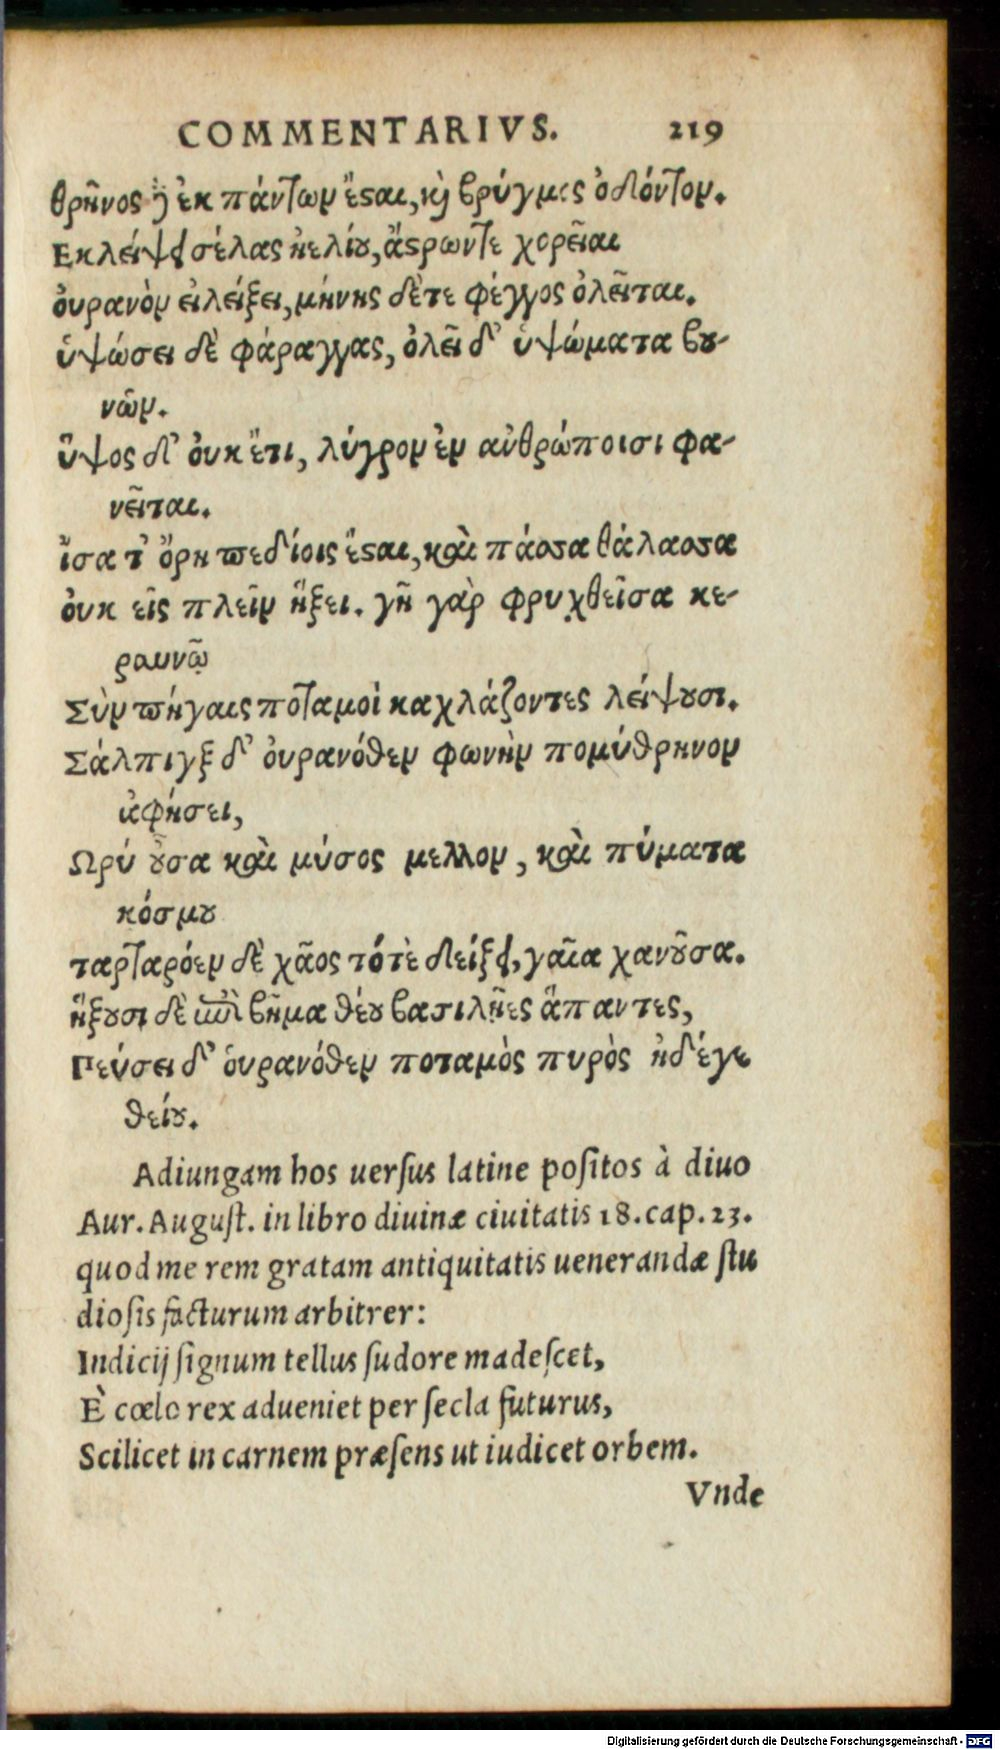 COMMENTARIVS. 219
θρῆνος δ' ἐκ πάντων ἔσαι, κὶ βρύγμος ὀδόντον.
Εκλείψει σέλας ἠελίου, ἄσρωντε χορεῖαι
ὀυρανὸν εἰλείξει, μήνης δὲτε φέγγος ὀλεῖται.
ὑψώσει δὲ φάραγγας, ὀλεῖ δ' ὑψώματα βου-
νῶν.
ὕψος δ' ὀυκ ἔτι, λύγρον ἐν ανθρώποισι φα-
νεῖται.
ἶσα τ' ὄρη πεδίοις ἔσαι, καὶ πάσσα θάλασσα
ὀυκ εἰς πλεῖν ἥξει. γῆ γὰρ φρυχθεῖσα κε-
ραυνῷ
Σὺν πήγαις ποταμοὶ καχλάζοντες λείψουσι.
Σάλπιγξ δ' ὀυρανόθεν φωνὴν πομύθρηνον
ἀφήσει,
Ωρύ ουσα καὶ μύσος μελλον, καὶ πύματα
κόσμου
ταρταρόεν δὲ χᾶος τότὲ δείξει, γαῖα χανοῦσα.
ἥξουσι δὲ ἐπὶ βῆμα θέου βασιλῆες ἅπαντες,
Γεύσει δ' ὁυρανόθεν ποταμὸς πυρὸς ἠδέγε
θείου.
Adiungam hos uersus latine positos à diuo
Aur. August. in libro diuinæ ciuitatis 18. cap. 23.
quod me rem gratam antiquitatis uenerandæ stu
diosis facturum arbitrer:
Indicij signum tellus sudore madescet,
È cœlo rex adueniet per secla futurus,
Scilicet in carnem præsens ut iudicet orbem.
Vnde
Digitalisierung gefördert durch die Deutsche Forschungsgemeinschaft - DFG